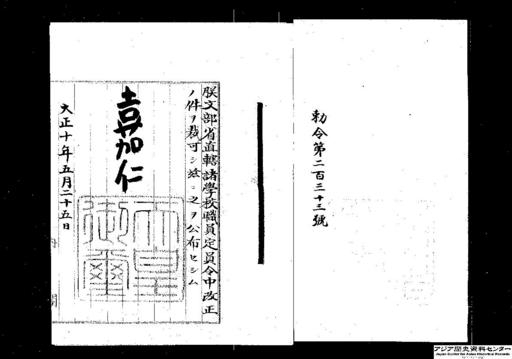 勅令第二百三十三號
朕文部省直轄諸學校職員定員令中改正
ノ件ヲ裁可シ玆ニ之ヲ公布セシム
嘉仁
天皇御璽
大正十年五月二十五日
アジア歴史資料センター
Japan Center for Asian Historical Records